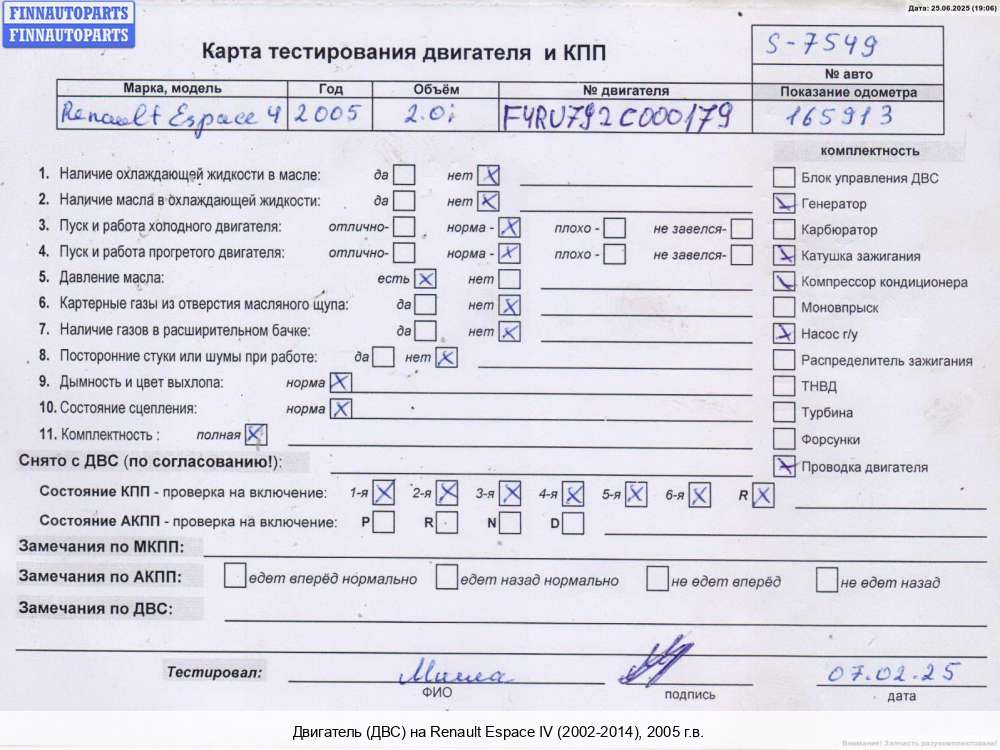 FINNAUTOPARTS
FINNAUTOPARTS
Дата: 25.06.2025 (19:06)
Карта тестирования двигателя и КПП
S-7549
№ авто
Марка, модель Год Объём № двигателя Показание одометра
Renault Espace 4 2005 2.0i F4RU792C000179 165913
комплектность
1. Наличие охлаждающей жидкости в масле: да нет
Блок управления ДВС
2. Наличие масла в охлаждающей жидкости: да нет
Генератор
3. Пуск и работа холодного двигателя: отлично- норма - плохо - не завелся-
Карбюратор
4. Пуск и работа прогретого двигателя: отлично- норма - плохо - не завелся-
Катушка зажигания
5. Давление масла: есть нет
Компрессор кондиционера
6. Картерные газы из отверстия масляного щупа: да нет
Моновпрыск
7. Наличие газов в расширительном бачке: да нет
Насос г/у
8. Посторонние стуки или шумы при работе: да нет
Распределитель зажигания
9. Дымность и цвет выхлопа: норма
ТНВД
10. Состояние сцепления: норма
Турбина
11. Комплектность : полная
Форсунки
Снято с ДВС (по согласованию!):
Проводка двигателя
Состояние КПП - проверка на включение: 1-я 2-я 3-я 4-я 5-я 6-я R
Состояние АКПП - проверка на включение: P R N D
Замечания по МКПП:
Замечания по АКПП: едет вперёд нормально едет назад нормально не едет вперёд не едет назад
Замечания по ДВС:
Тестировал: 07.02.25
ФИО подпись дата
Двигатель (ДВС) на Renault Espace IV (2002-2014), 2005 г.в.
Внимание! Запчасть разукомплектована!